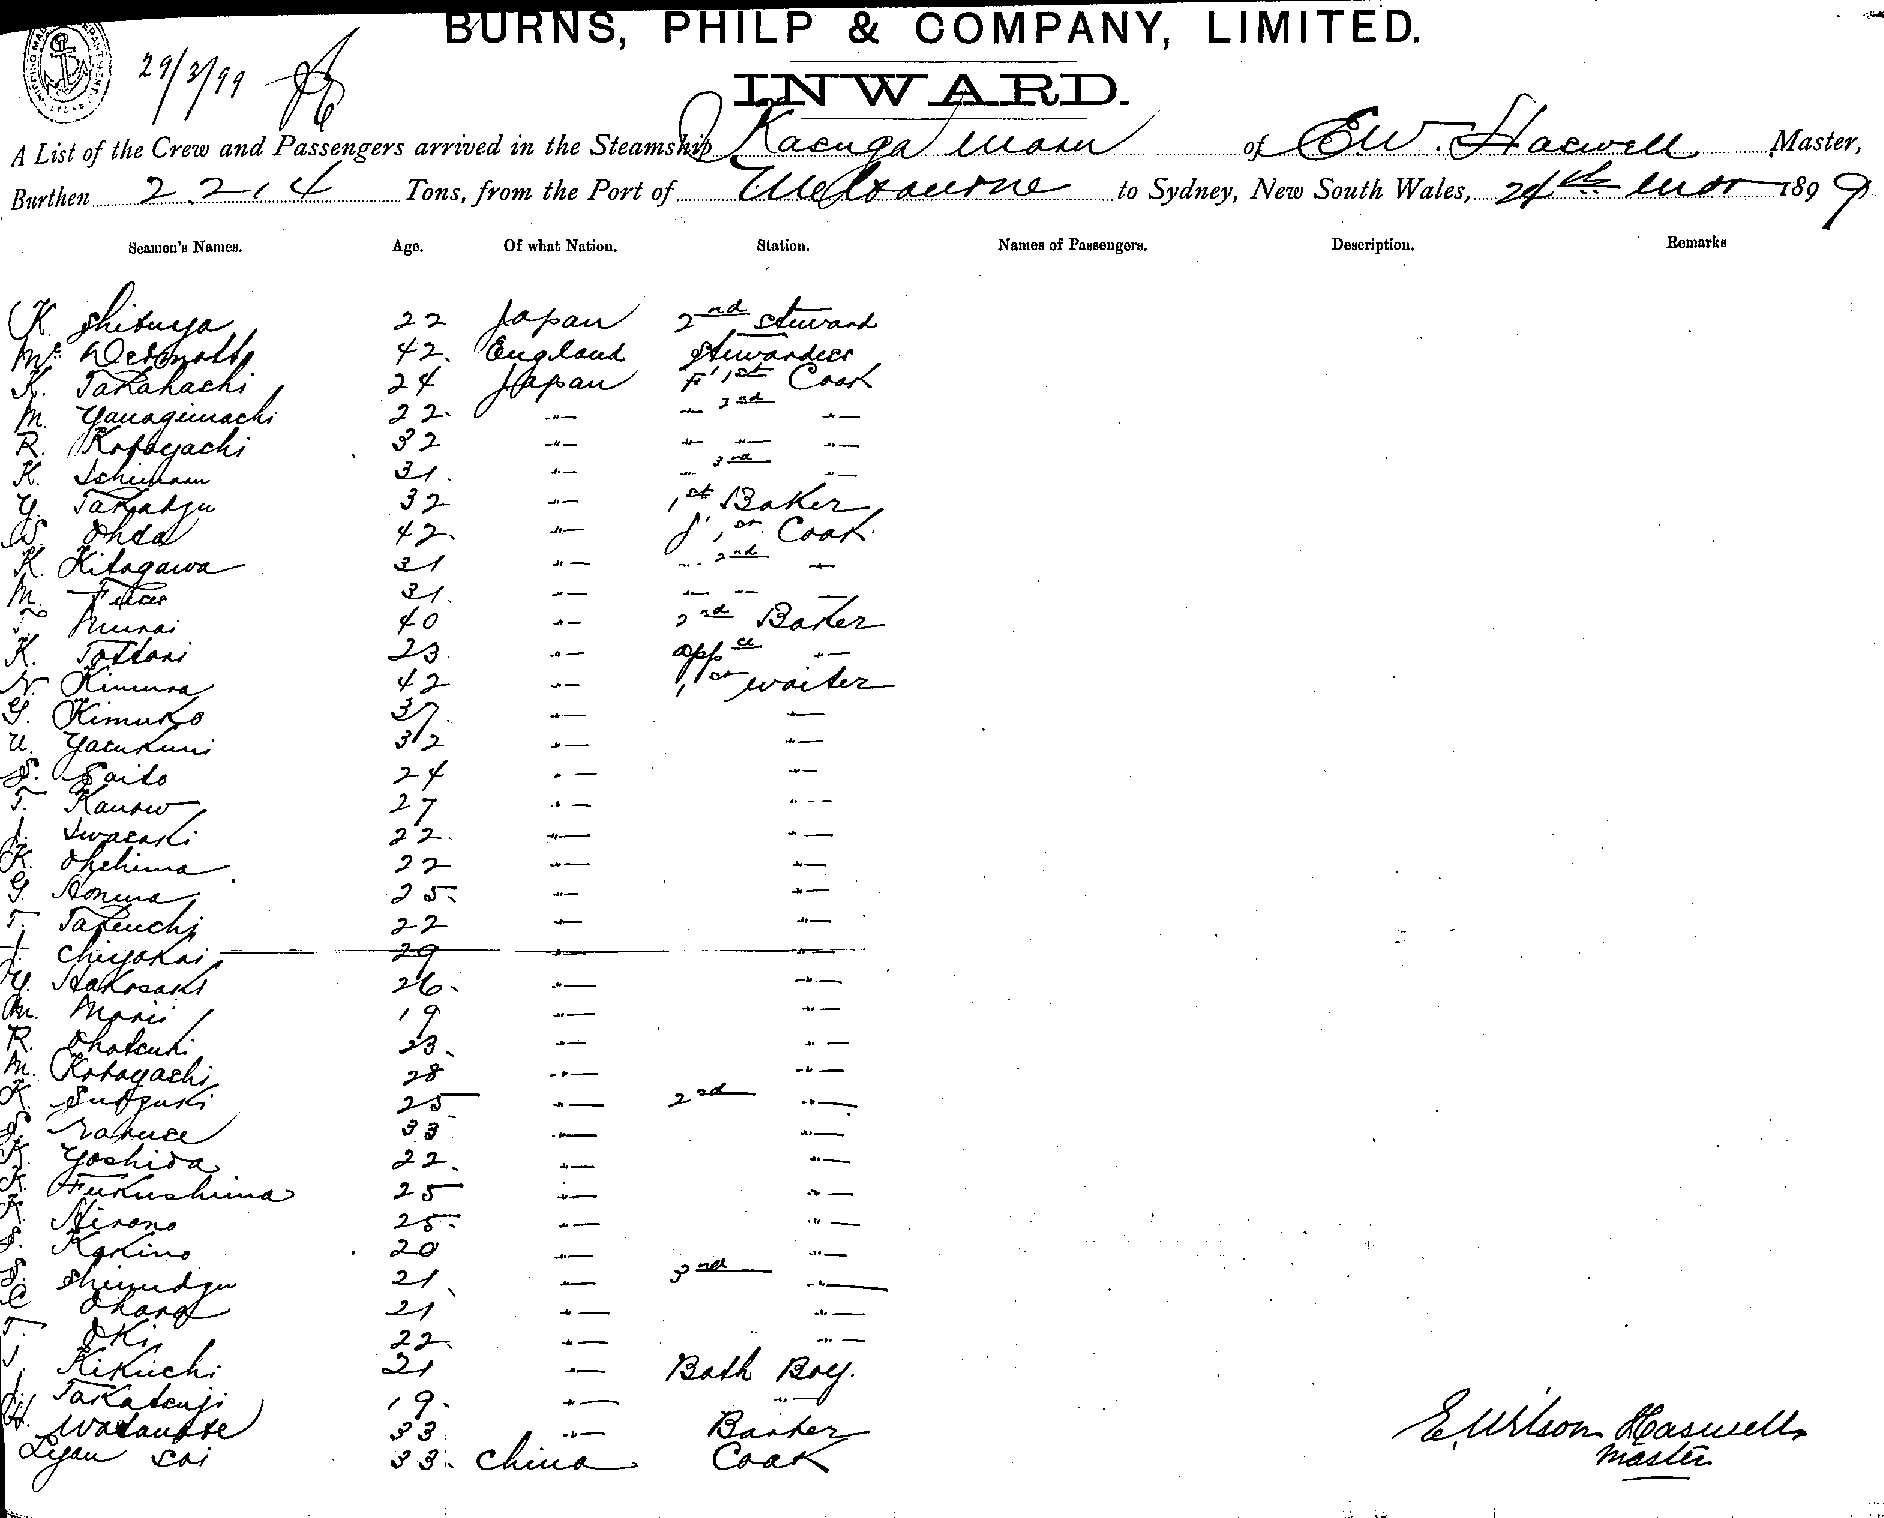 BURNS, PHILP & COMPANY, LIMITED.
29/3/99
INWARD.
A List of the Crew and Passengers arrived in the Steamship Kasuga Maru of E.W. Haswell Master,
Burthen 2214 Tons, from the Port of Melbourne to Sydney, New South Wales, 28th Mar 1899
Seamen's Names. Age. Of what Nation. Station. Names of Passengers. Description. Remarks
K Shibuya 22 Japan 2nd Steward
42. England Stewardess
K. Takahachi 24 Japan F' 1st Cook
M. Yanagimachi 22. -"- -"- 2nd -"-
R. Kobayachi 32 -"- -"- -"- -"-
K. 31. -"- -"- 3rd -"-
Y. 32 -"- 1st Baker
Ohta 42. -"- 1st Cook
K. Kitagawa 31 -"- -"- 2nd -"-
M. 31. -"- -"- -"- -"-
T. Murai 40 -"- 2nd Baker
K. Tottori 23 -"- app ce -"-
N. Kimura 42 -"- 1st waiter
G. Kimuro 37. -"- -"-
U. Yacukuni 32 -"- -"-
S. Saito 24 -"- -"-
T. 27 -"- -"-
I. Iwacaki 22. -"- -"-
K. Ohchima 22 -"- -"-
G. Honma 25. -"- -"-
T. Takeuchi 22 -"- -"-
Chiyokai 29 -"- -"-
Y. Hakosaki 26. -"- -"-
M. Morii 19 -"- -"-
R. Ohatcuki 23. -"- -"-
M. Kobayachi 28 -"- -"-
K. Sudzuki 25 -"- 2nd -"-
S. Naruce 33 -"- -"-
K. Yoshida 22. -"- -"-
K. Fukushima 25 -"- -"-
K. Hirano 25. -"- -"-
S. Kakino 20 -"- -"-
S. Shimidzu 21 -"- 3rd -"-
C. Ohara 21 -"- -"-
T. Oki 22. -"- -"-
Kikuchi 21 -"- Bath Boy.
Takatcuji 19. -"- -"-
H. Watanabe 33 -"- Barber
Sai 33. China Cook
E. Wilson Haswell
Master